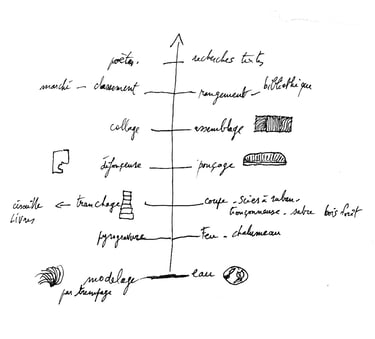 poètes. recherches textes
marché - classement rangement - bibliothèque
collage assemblage
défonceuse ponçage
cisaille ← tranchage coupe - scies à ruban -
livres tronçonneuse - sabre bois forêt
pyrogravure Feu - chalumeau
modelage eau
par trempage